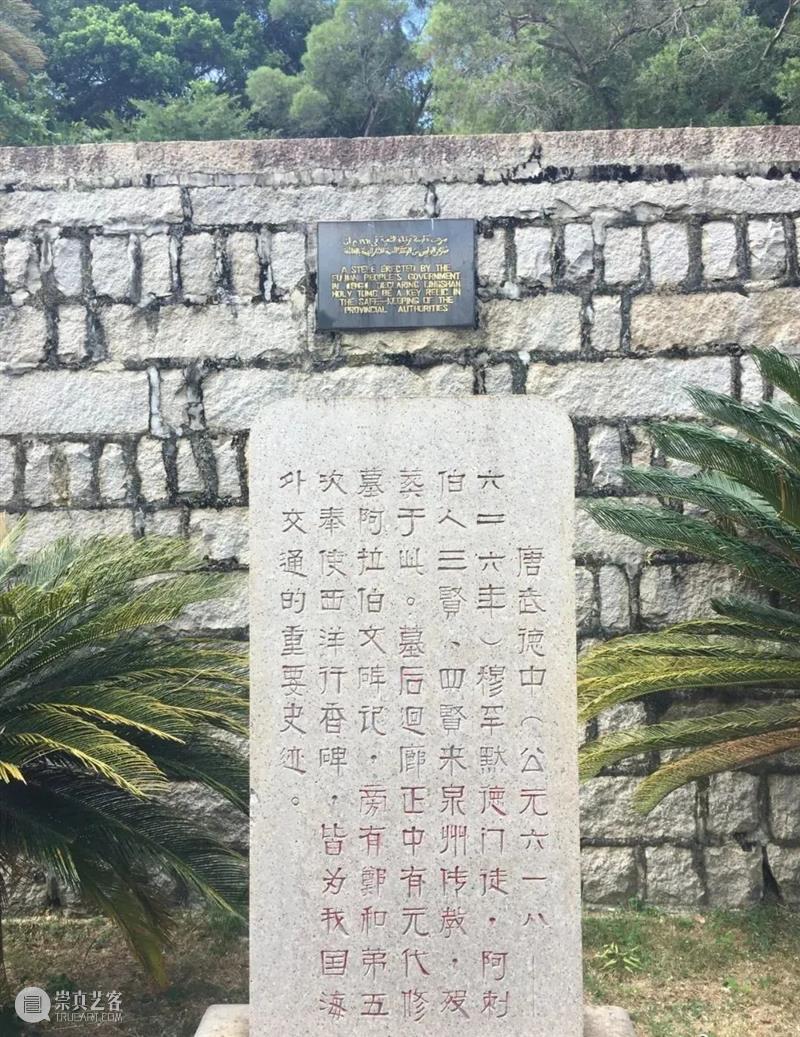 A STELE ERECTED BY THE
FUJIAN PEOPLE'S GOVERNMENT
IN DECLARING LINGSHAN
HOLY TOMB BE A KEY RELIC IN
THE SAFE-KEEPING OF THE
PROVINCIAL AUTHORITIES
唐武德中（公元六一八—
六二六年）穆罕默德门徒，阿剌
伯人三賢、四賢来泉州传教，殁
葬于此。墓后迴廊正中有元代修
墓阿拉伯文碑记，旁有鄭和第五
次奉使西洋行香碑，皆为我国海
外交通的重要史迹。
崇真艺客
TRUEART.COM